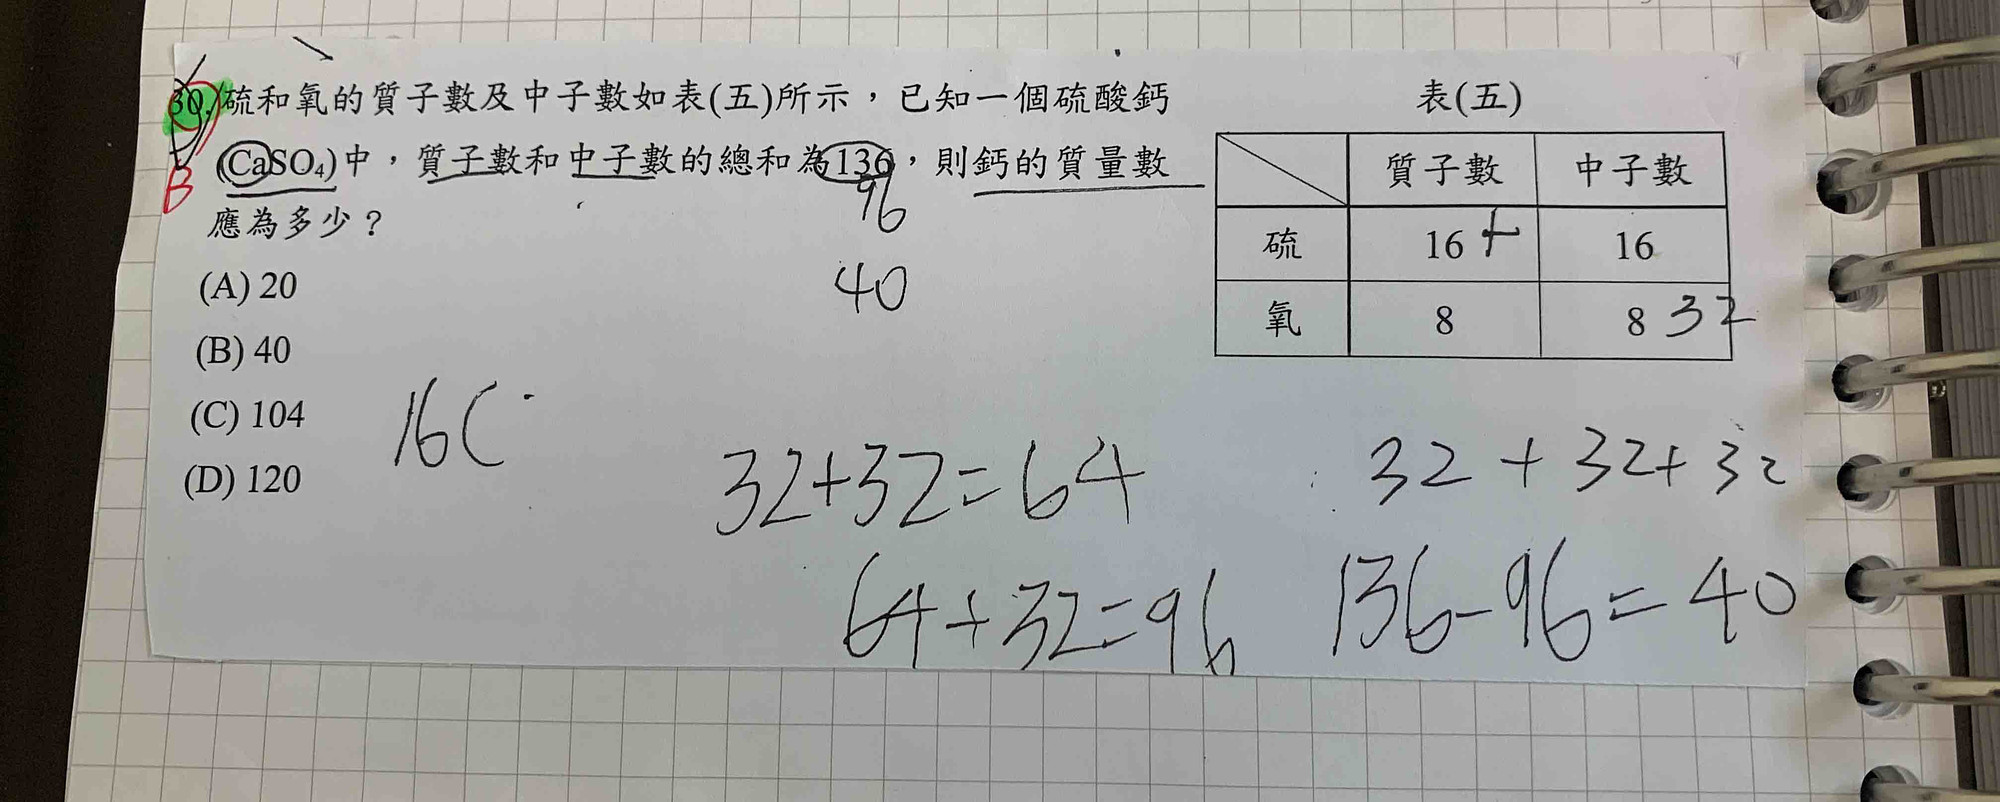 30. 硫和氧的質子數及中子數如表(五)所示，已知一個硫酸鈣
(CaSO₄)中，質子數和中子數的總和為136，則鈣的質量數
應為多少？
B
96
40
(A) 20
(B) 40
(C) 104
(D) 120
表(五)
質子數 中子數
硫 16 + 16
氧 8 8 32
16(
32+32=64
32+32+32
64+32=96
136-96=40